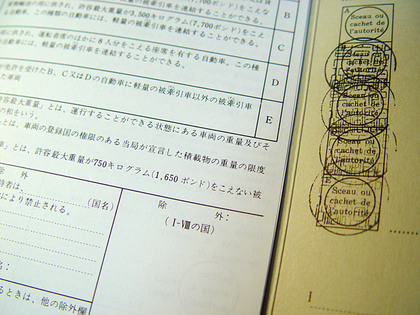 貨物運送の用に供され、許容最大重量が3,500キログラム(7,700ポンド)をこえる自
動車。この種類の自動車には、軽量の被牽引車を連結することができる。
B
C
用に供され、運転者席のほかに8人分をこえる座席を有する自動車。この種
動車には、軽量の被牽引車を連結することができる。
D
免許を受けたB、C又はDの自動車に軽量の被牽引車以外の被牽引車
た車両
E
許容最大重量」とは、運行することができる状態にある車両の重量及びそ
の和をいう。
とは、車両の登録国の権限のある当局が宣言した積載物の重量の限度
」とは、許容最大重量が750キログラム(1,650 ポンド)をこえない被
除 外
(国名)
により禁止される。
除 外:
(I-VIIIの国)
名:
るときは、他の除外欄
A
Sceau ou
cachet de
l'autorité
Sceau ou
cachet de
l'autorité
Sceau ou
cachet de
l'autorité
Sceau ou
cachet de
l'autorité
E
Sceau ou
cachet de
l'autorité
I